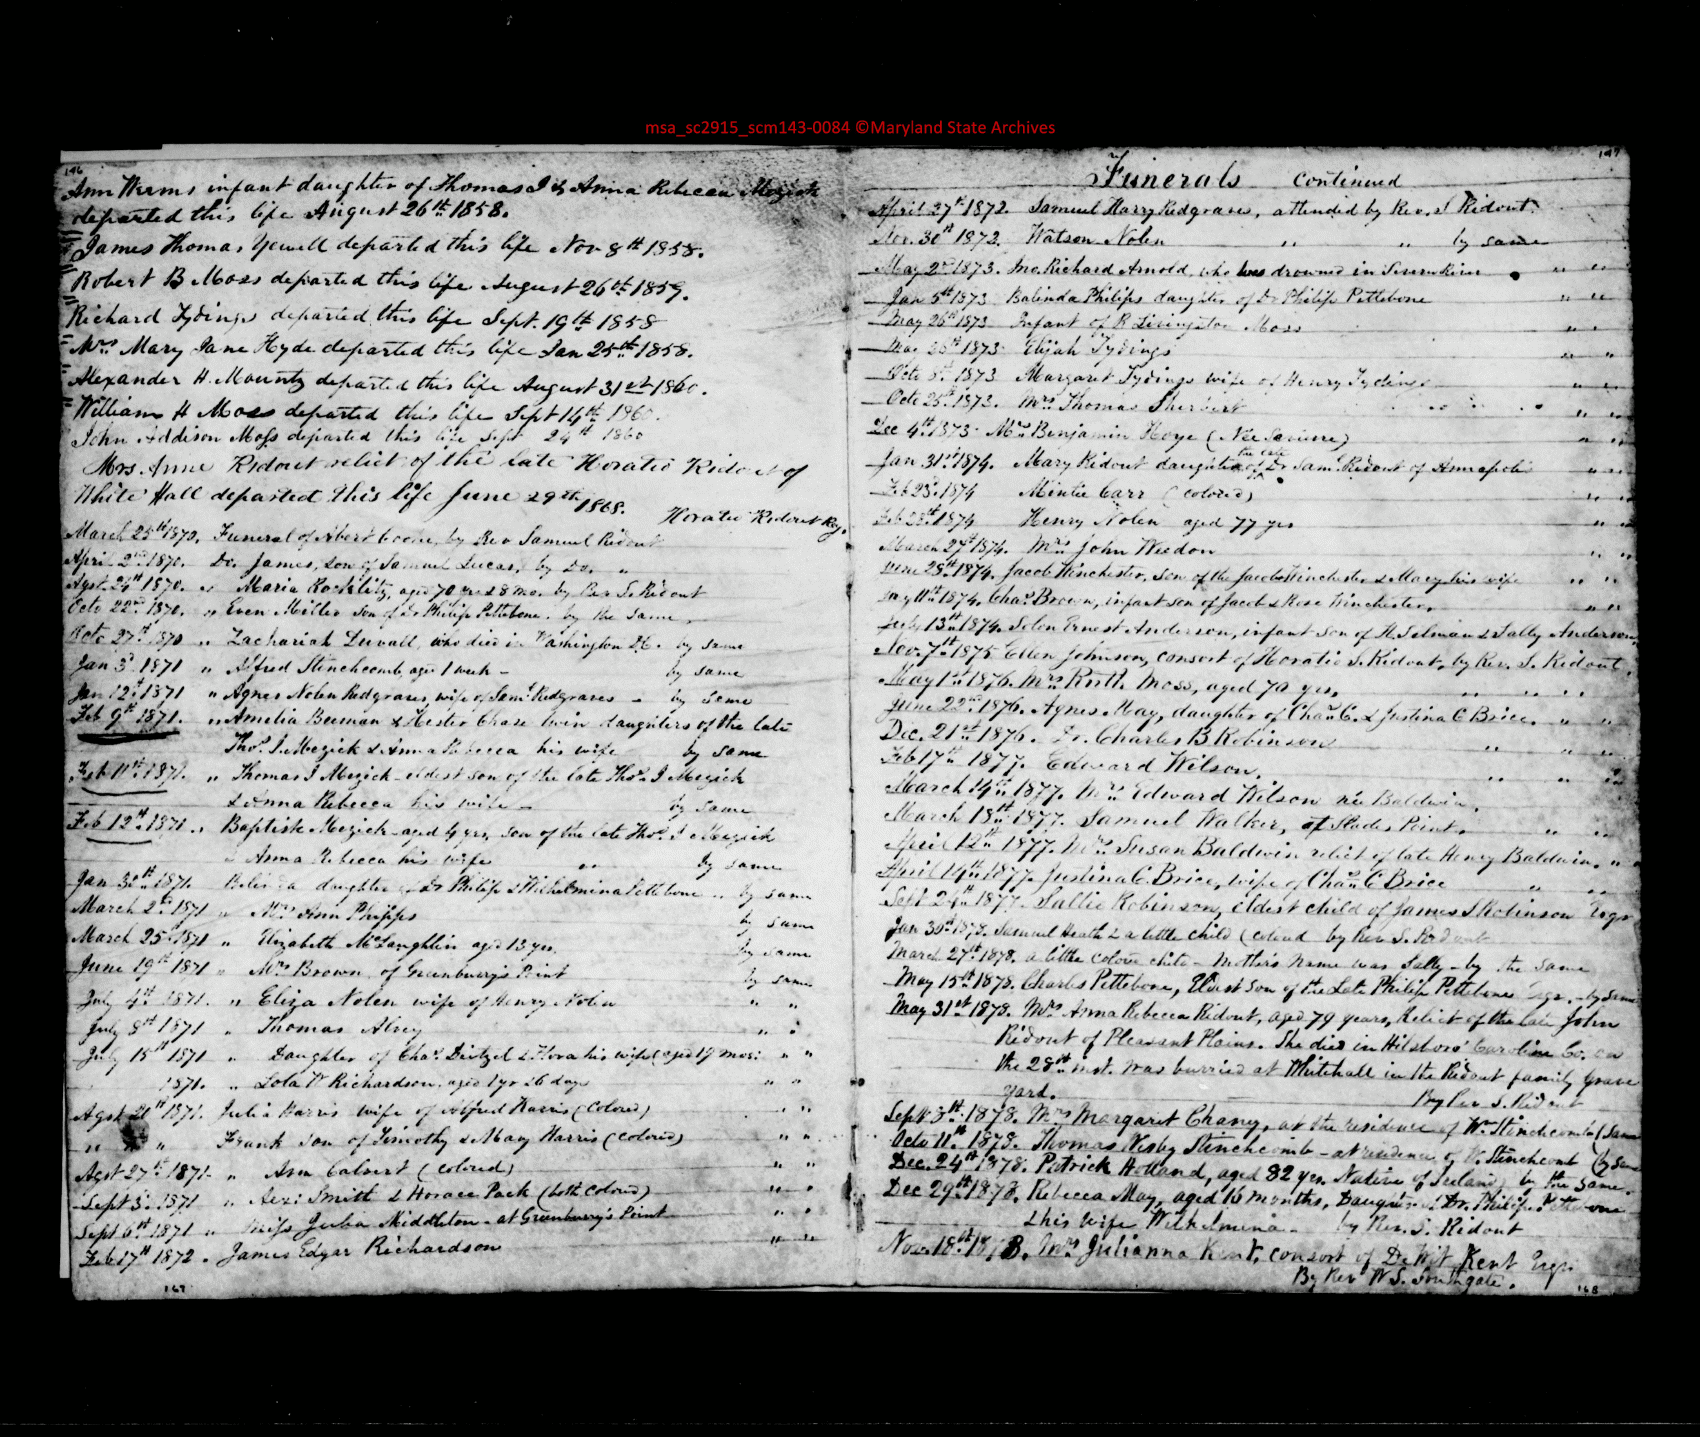 msa_sc2915_scm143-0084 ©Maryland State Archives
146
Ann Weems infant daughter of Thomas I & Anna Rebecca Mezick
departed this life August 26th 1858.
James Thomas Yewell departed this life Nov 8th 1858.
Robert B Moss departed this life August 26th 1859.
Richard Tydings departed this life Sept. 19th 1858
Mrs Mary Jane Hyde departed this life Jan 25th 1858.
Alexander H. Mountz departed this life August 31st 1860.
William H Moss departed this life Sept 14th 1860.
John Addison Moss departed this life Sept 24th 1860
Mrs. Anne Ridout relict of the late Horatio Ridout of
White Hall departed this life June 29th 1868.
Horatio Ridout Reg.
March 25th 1870. Funeral of by Rev Samuel Ridout
April 2nd 1870. Do. James, son of Samuel Lucas, by Do. "
Agst. 24th 1870. " Maria Rocklitz, aged 70 yrs & 8 mo. by Rev S. Ridout
Octo 22nd 1870. " Even Miller son of Dr Philip Pettebone. by the same.
Octo 27th 1870 " Zachariah Duvall, who died in Washington D.C. by same
Jan 3d 1871 " Alfred Stinchcomb, aged 1 week - by same
Jan 12th 1871 " Agnes Nolen Redgraves, wife of Saml Redgraves - by same
Feb 9th 1871. " Amelia Beeman & Hester Chase twin daughters of the late
Thos. I. Mezick & Anna Rebecca his wife by same
Feb 11th 1871. " Thomas I Mezick - eldest son of the late Thos. I Mezick
& Anna Rebecca his wife - by same
Feb 12th 1871 " Baptist Mezick - aged 4 yrs, son of the late Thos. I Mezick
" Anna Rebecca his wife " by same
Jan 30th 1871. daughter of Dr Philip & Wilhelmina Pettebone " by same
March 2nd 1871 " Mrs Ann Phipps by same
March 25th 1871 " Elizabeth McLaughlin aged 13 yrs. by same
June 19th 1871 " Mrs Brown of Greenbury's Point by same
July 4th 1871. " Eliza Nolen wife of Henry Nolen " "
July 8th 1871 " Thomas " "
July 15th 1871 " Daughter of Chas. & Flora his wife (aged 19 mos: " "
1871. " Lola Richardson. aged 1 yr 26 days " "
Agst 20th 1871. Julia Harris wife of Alfred Harris (Colored) " "
" " " Frank son of Timothy & Mary Harris (Colored) " "
Agst 27th 1871. " Ann Calvert (Colored) " "
Sept 3d 1871 " Smith & Horace Pack (both Colored) " "
Sept 6th 1871 " Miss Julia Middleton - at Greenbury's Point " "
Feb 17th 1872. James Edgar Richardson " "
167
147
Funerals continued
April 27th 1872. Samuel Harry Redgraves, attended by Rev. S Ridout.
Nov. 30th 1872. Watson Nolen " " by same
May 2nd 1873. Jno. Richard Arnold, who was drowned in Severn River " "
Jan 5th 1873 Belinda Philips daughter of Dr Philip Pettebone " "
May 26th 1873 Infant of R Livingston Moss " "
May 1873 Elijah Tydings " "
Octo 8th 1873 Margaret Tydings wife of Henry Tydings " "
Octo 25th 1873. Mrs Thomas Sherbert " "
Dec 4th 1873 Mrs Benjamin Hoye (Nee ) " "
Jan 31st 1874. Mary Ridout daughter of the late Dr Saml. Ridout of Annapolis " "
Feb 23d 1874 Mintie Carr (Colored) " "
Feb 1874 Henry Nolen aged 77 yrs " "
March 27th 1874. Mrs John Weedon " "
June 28th 1874. Jacob Winchester, son of the Jacob Winchester & Mary his wife " "
11th 1874. Chas. Brown, infant son of Jacob & Rose Winchester. " "
July 13th 1874. Selon Ernest Anderson, infant son of H. Selman & Sally Anderson.
Nov. 7th 1875 Ellen Johnson, consort of Horatio S. Ridout, by Rev. S. Ridout.
May 1st 1876. Mrs Ruth Moss, aged 70 yrs. " " "
June 22nd 1876. Agnes May, daughter of Chas. C. & Justina C Brice. " "
Dec. 21st 1876. Dr. Charles B Robinson " " "
Feb 17th 1877. Edward Wilson. " " "
March 14th 1877. Mrs. Edward Wilson née Baldwin.
March 18th 1877. Samuel Walker, of Slades Point. " "
April 12th 1877. Mrs. Susan Baldwin relict of late Henry Baldwin. " "
April 14th 1877. Justina C. Brice, wife of Chas. C Brice " "
Sept 24th 1877. Sallie Robinson, eldest child of James S Robinson Esqr
Jan 30th 1878. Samuel Heath & a little child (colored by Rev S. Ridout
March 27th 1878. a little colored child - Mother's name was Sally - by the same
May 15th 1878. Charles Pettebone, Eldest son of the Late Philip Pettebone Esqr. - by same
May 31st 1878. Mrs Anna Rebecca Ridout, aged 79 years, Relict of the late John
Ridout of Pleasant Plains. She died in Hilsboro' Caroline Co. on
the 28th inst. was burried at Whitehall in the Ridout family Grave
Yard. By Rev. S. Ridout
Sept 3d. 1878. Mrs Margaret Chaney, at the residence of Wm Stinchcomb (Same
Octo 11th 1878. Thomas Stinchcomb - at residence of W. Stinchcomb (by same
Dec. 24th 1878. Patrick Holland, aged 82 yrs. Native of Ireland; by the same.
Dec 29th 1878. Rebecca May, aged 16 months, Daughter of Dr. Philip Pettebone
& his wife Wilhelmina - by Rev. S. Ridout
Nov. 18th 1878. Mrs Julianna Kent, consort of De Wit Kent Esqr.
By Rev W. S. Southgate.
168